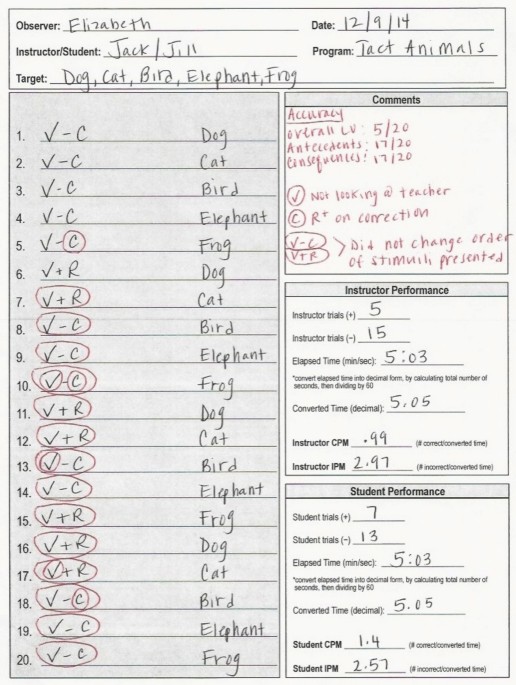 Observer: Elizabeth Date: 12/9/14
Instructor/Student: Jack/Jill Program: Tact Animals
Target: Dog, Cat, Bird, Elephant, Frog
1. V-C Dog
2. V-C Cat
3. V-C Bird
4. V-C Elephant
5. V-C Frog
6. V+R Dog
7. V+R Cat
8. V-C Bird
9. V-C Elephant
10. V-C Frog
11. V+R Dog
12. V+R Cat
13. V-C Bird
14. V-C Elephant
15. V+R Frog
16. V+R Dog
17. V+R Cat
18. V-C Bird
19. V-C Elephant
20. V-C Frog
Comments
Accuracy
overall LU: 5/20
Antecedents: 17/20
Consequences: 17/20
V Not looking @ teacher
C R+ on correction
V-C
V+R > Did not change order
of stimuli presented
Instructor Performance
Instructor trials (+) 5
Instructor trials (-) 15
Elapsed Time (min/sec): 5:03
*convert elapsed time into decimal form, by calculating total number of
seconds, then dividing by 60
Converted Time (decimal): 5.05
Instructor CPM .99 (# correct/converted time)
Instructor IPM 2.97 (# incorrect/converted time)
Student Performance
Student trials (+) 7
Student trials (-) 13
Elapsed Time (min/sec): 5:03
*convert elapsed time into decimal form, by calculating total number of
seconds, then dividing by 60
Converted Time (decimal): 5.05
Student CPM 1.4 (# correct/converted time)
Student IPM 2.57 (# incorrect/converted time)